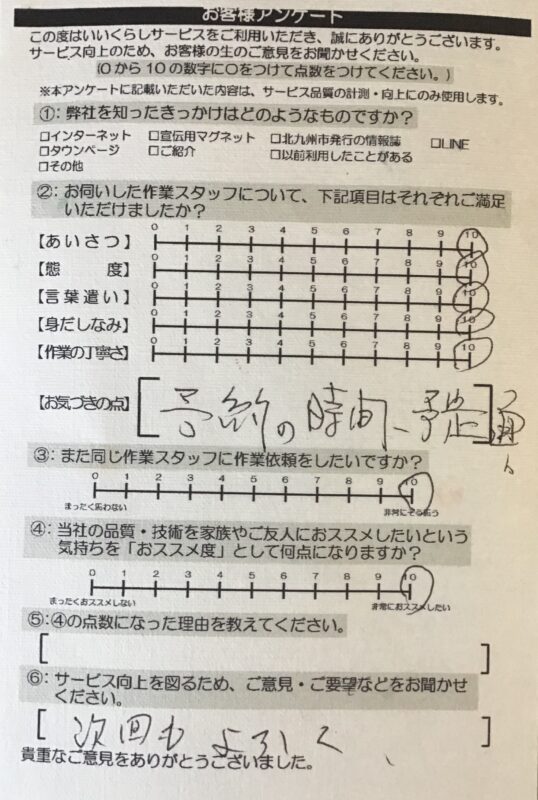 お客様アンケート
この度はいいくらしサービスをご利用いただき、誠にありがとうございます。
サービス向上のため、お客様の生のご意見をお聞かせください。
(0から10の数字に○をつけて点数をつけてください。)
※本アンケートに記載いただいた内容は、サービス品質の計測・向上にのみ使用します。
①:弊社を知ったきっかけはどのようなものですか?
□インターネット □宣伝用マグネット □北九州市発行の情報誌 □LINE
□タウンページ □ご紹介 □以前利用したことがある
□その他
②:お伺いした作業スタッフについて、下記項目はそれぞれご満足
いただけましたか?
【あいさつ】 0 1 2 3 4 5 6 7 8 9 10
【態 度】 0 1 2 3 4 5 6 7 8 9 10
【言葉遣い】 0 1 2 3 4 5 6 7 8 9 10
【身だしなみ】 0 1 2 3 4 5 6 7 8 9 10
【作業の丁寧さ】 0 1 2 3 4 5 6 7 8 9 10
【お気づきの点】 予約の時間、予定
③:また同じ作業スタッフに作業依頼をしたいですか?
0 1 2 3 4 5 6 7 8 9 10
まったく思わない 非常にそう思う
④:当社の品質・技術を家族やご友人におススメしたいという
気持ちを「おススメ度」として何点になりますか?
0 1 2 3 4 5 6 7 8 9 10
まったくおススメしない 非常におススメしたい
⑤:④の点数になった理由を教えてください。
⑥:サービス向上を図るため、ご意見・ご要望などをお聞かせ
ください。
次回も よろしく、
貴重なご意見をありがとうございました。